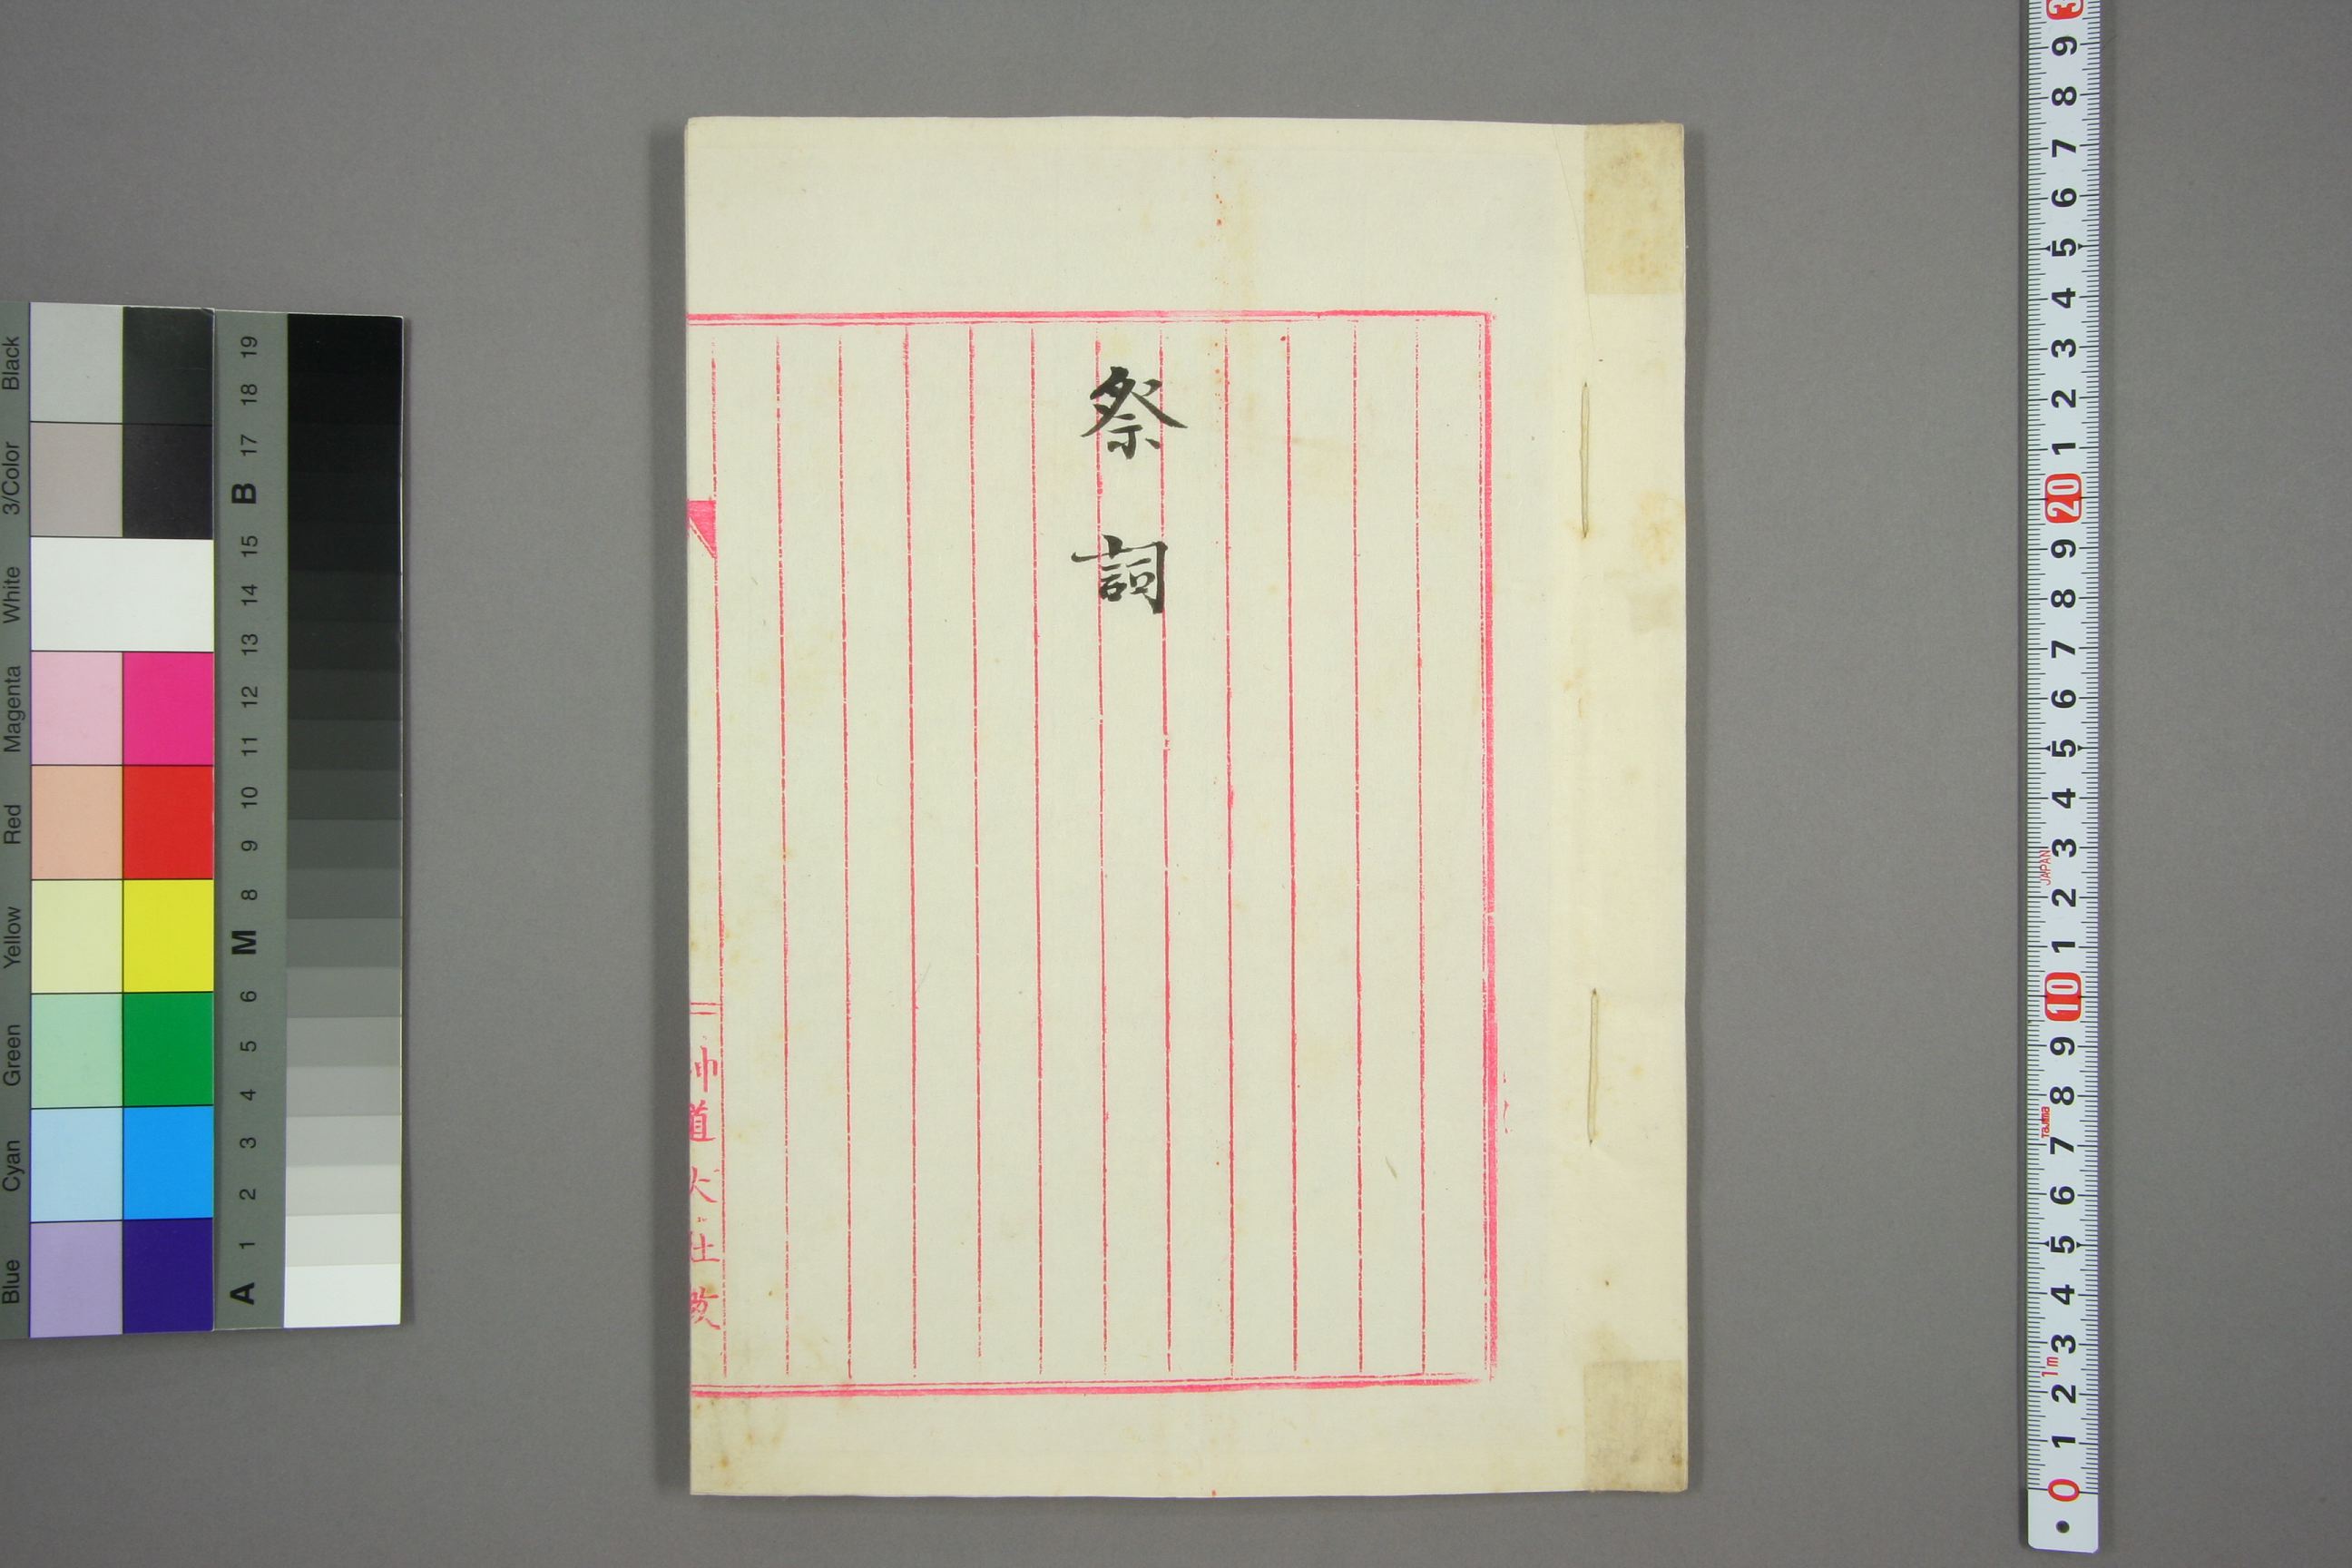 祭詞
神道大社教
Black
3/Color
White
Magenta
Red
Yellow
Green
Cyan
Blue
19
18
17
B
15
14
13
12
11
10
9
8
M
6
5
4
3
2
1
A
3
9
8
7
6
5
4
3
2
1
20
9
8
7
6
5
4
3
JAPAN
2
1
10
9
8
Tajima
7
6
5
4
3
1m
2
1
0